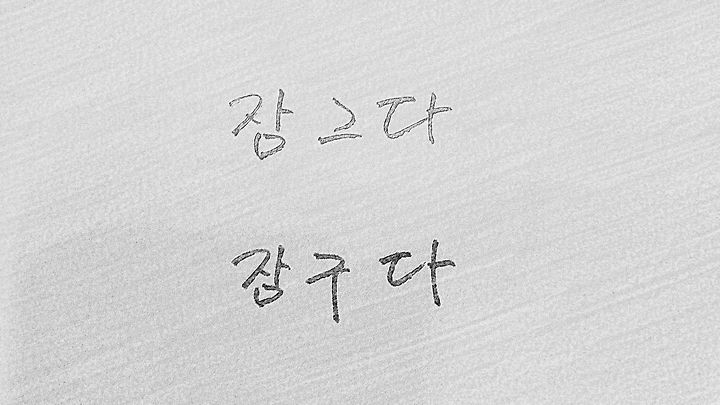 잠그다
잠구다